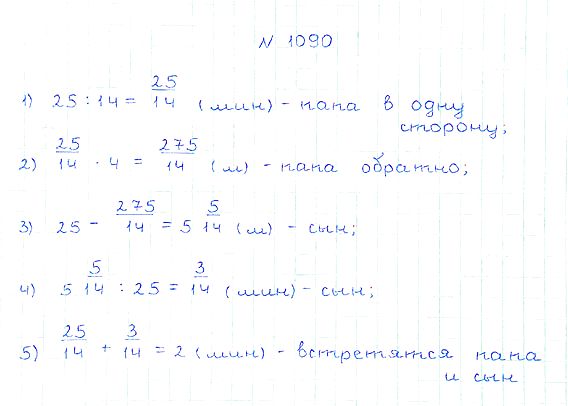 N 1090
1) 25 : 14 = 25/14 (мин) - папа в одну
сторону;
2) 25/14 · 4 = 275/14 (м) - папа обратно;
3) 25 - 275/14 = 5 5/14 (м) - сын;
4) 5 5/14 : 25 = 3/14 (мин) - сын;
5) 25/14 + 3/14 = 2 (мин) - встретятся папа
и сын